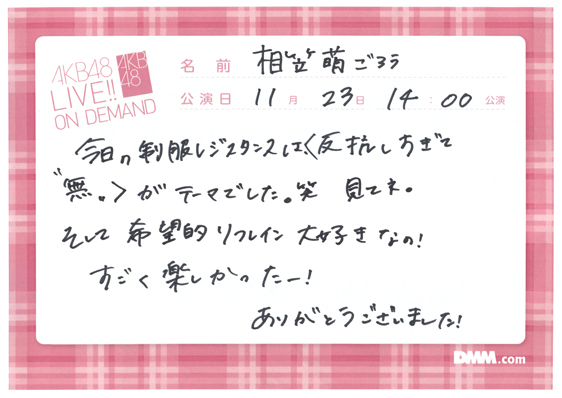 AKB48
LIVE!!
ON DEMAND
AKB
48
名前 相笠萌 ごろう
公演日 11月 23日 14:00 公演
今日の制服レジスタンスは〈反抗しすぎて
"無。〉がテーマでした。笑 見てネ。
そして 希望的リフレイン 大好きなの!
すごく楽しかったー!
ありがとうございました!
DMM.com